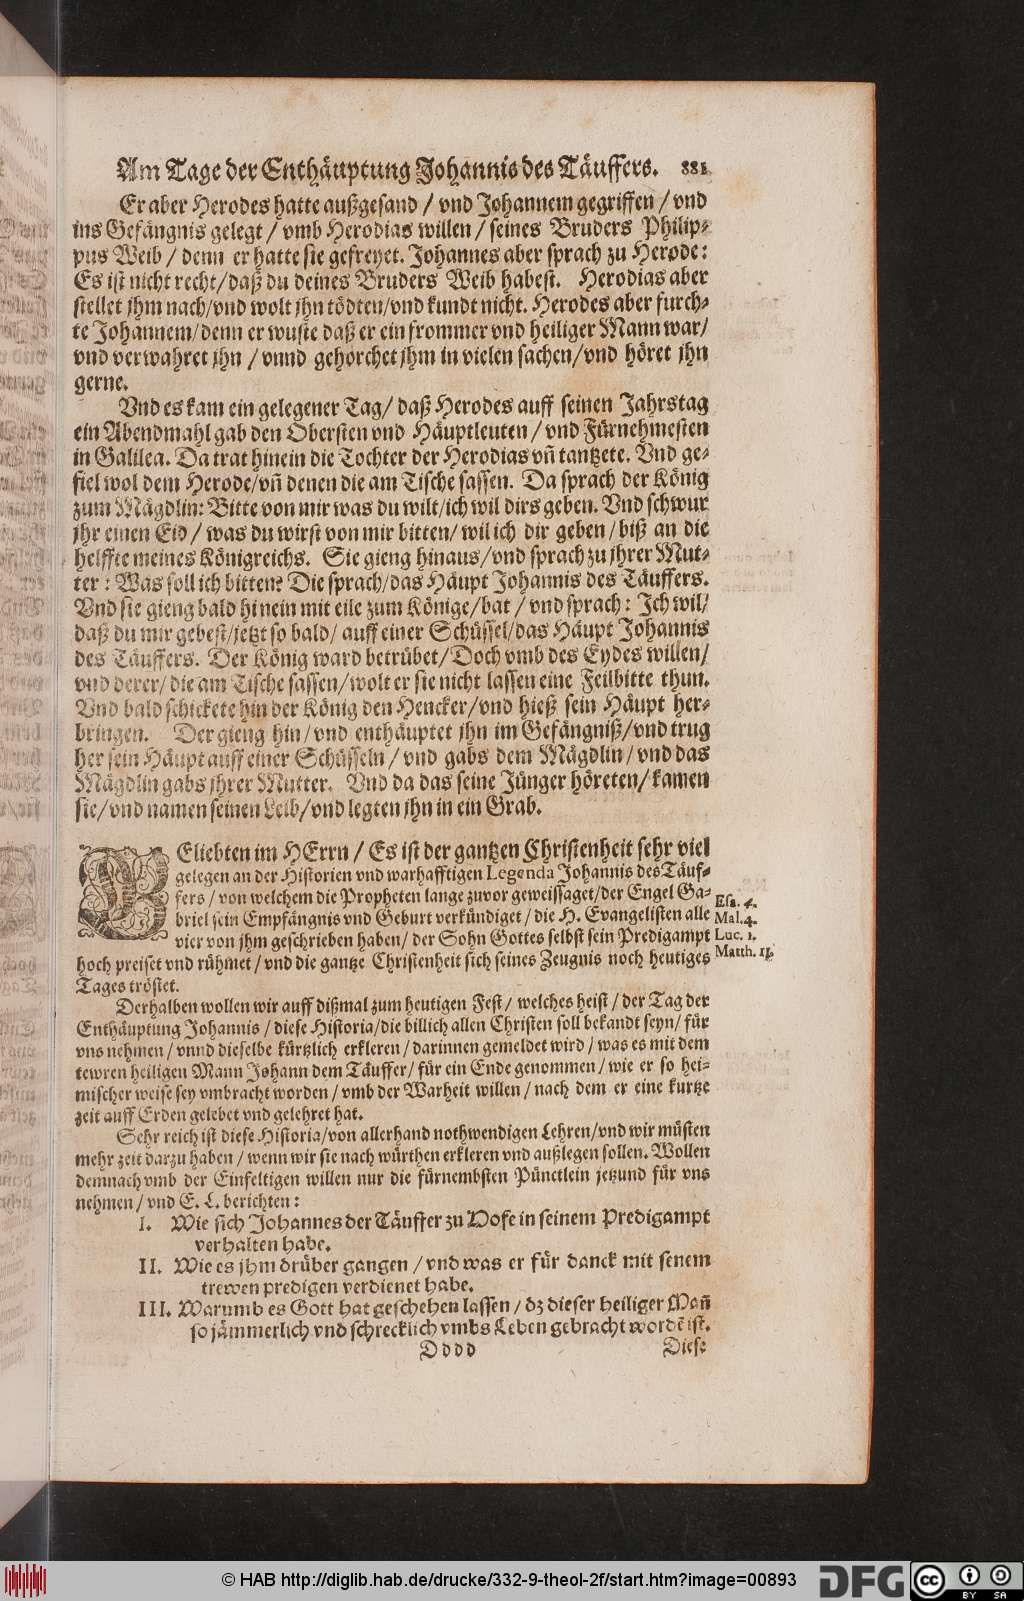 Am Tage der Enthäuptung Johannis des Täuffers. 881
Er aber Herodes hatte außgesand / vnd Johannem gegriffen / vnd
ins Gefängnis gelegt / vmb Herodias willen / seines Bruders Philip-
pus Weib / denn er hatte sie gefreyet. Johannes aber sprach zu Herode:
Es ist nicht recht / daß du deines Bruders Weib habest. Herodias aber
stellet jhm nach / vnd wolt jhn tödten / vnd kundt nicht. Herodes aber furch-
te Johannem / denn er wuste daß er ein frommer vnd heiliger Mann war /
vnd verwahret jhn / vnnd gehorchet jhm in vielen sachen / vnd höret jhn
gerne.
Vnd es kam ein gelegener Tag / daß Herodes auff seinen Jahrstag
ein Abendmahl gab den Obersten vnd Häuptleuten / vnd Fürnehmesten
in Galilea. Da trat hinein die Tochter der Herodias vñ tantzete. Vnd ge-
fiel wol dem Herode / vñ denen die am Tische sassen. Da sprach der König
zum Mägdlin: Bitte von mir was du wilt / ich wil dirs geben. Vnd schwur
jhr einen Eid / was du wirst von mir bitten / wil ich dir geben / biß an die
helffte meines Königreichs. Sie gieng hinaus / vnd sprach zu jhrer Mut-
ter: Was soll ich bitten? Die sprach / das Häupt Johannis des Täuffers.
Vnd sie gieng bald hinein mit eile zum Könige / bat / vnd sprach: Ich wil /
daß du mir gebest / jetzt so bald / auff einer Schüssel / das Häupt Johannis
des Täuffers. Der König ward betrübet / Doch vmb des Eydes willen /
vnd derer / die am Tische sassen / wolt er sie nicht lassen eine Feilbitte thun.
Vnd bald schickete hin der König den Hencker / vnd hieß sein Häupt her-
bringen. Der gieng hin / vnd enthäuptet jhn im Gefängniß / vnd trug
her sein Häupt auff einer Schüsseln / vnd gabs dem Mägdlin / vnd das
Mägdlin gabs jhrer Mutter. Vnd da das seine Jünger höreten / kamen
sie / vnd namen seinen Leib / vnd legten jhn in ein Grab.
GEliebten im HErrn / Es ist der gantzen Christenheit sehr viel
gelegen an der Historien vnd warhafftigen Legenda Johannis des Täuf-
fers / von welchem die Propheten lange zuvor geweissaget / der Engel Ga-
briel sein Empfängnis vnd Geburt verkündiget / die H. Evangelisten alle
vier von jhm geschrieben haben / der Sohn Gottes selbst sein Predigampt
hoch preiset vnd rühmet / vnd die gantze Christenheit sich seines Zeugnis noch heutiges
Tages tröstet.
Esa. 4.
Mal. 4.
Luc. 1.
Matth. 11.
Derhalben wollen wir auff dißmal zum heutigen Fest / welches heist / der Tag der
Enthäuptung Johannis / diese Historia / die billich allen Christen soll bekandt seyn / für
vns nehmen / vnnd dieselbe kürtzlich erkleren / darinnen gemeldet wird / was es mit dem
tewren heiligen Mann Johann dem Täuffer / für ein Ende genommen / wie er so hei-
mischer weise sey vmbracht worden / vmb der Warheit willen / nach dem er eine kurtze
zeit auff Erden gelebet vnd gelehret hat.
Sehr reich ist diese Historia / von allerhand nothwendigen Lehren / vnd wir müsten
mehr zeit darzu haben / wenn wir sie nach würthen erkleren vnd außlegen sollen. Wollen
demnach vmb der Einfeltigen willen nur die fürnembsten Pünctlein jetzund für vns
nehmen / vnd E. L. berichten:
I. Wie sich Johannes der Täuffer zu Hofe in seinem Predigampt
verhalten habe.
II. Wie es jhm drüber gangen / vnd was er für danck mit senem
trewen predigen verdienet habe.
III. Warumb es Gott hat geschehen lassen / dz dieser heiliger Mañ
so jämmerlich vnd schrecklich vmbs Leben gebracht wordẽ ist.
Dddd
Diese
© HAB http://diglib.hab.de/drucke/332-9-theol-2f/start.htm?image=00893
DFG
cc BY SA